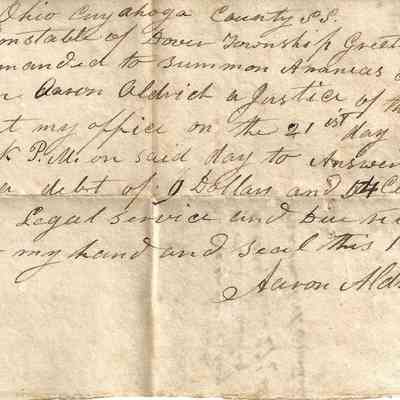 Ohio Cuyahoga County SS.
onstable of Dover Township Greet
manded to summon Ananias
Aaron Aldrich a Justice of th
t my office on the 21st day
k P.M. on said day to Answer
a debt of Dollars and 54 C
Legal service and Due
my hand and seal this 1
Aaron Ald